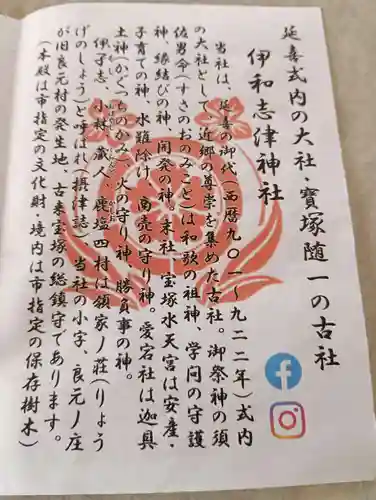 延喜式内の大社・寶塚随一の古社
伊和志津神社
当社は、延喜の御代(西暦九〇一〜九二二年)式内
の大社として、近郷の尊崇を集めた古社。御祭神の須
佐男命(すさのおのみこと)は和歌の祖神、学問の守護
神、縁結びの神、開発の神。末社、宝塚水天宮は安産・
子育ての神、水難除け、商売の守り神。愛宕社は迦具
土神(かぐつちのかみ)、火の守り神、勝負事の神。
伊孑志、小林、蔵人、鹿塩四村は領家ノ荘(りょう
げのしょう)と呼ばれ(摂津誌)当社の小字、良元ノ庄
が旧良元村の発生地、古来宝塚の総鎮守であります。
(本殿は市指定の文化財・境内は市指定の保存樹木)